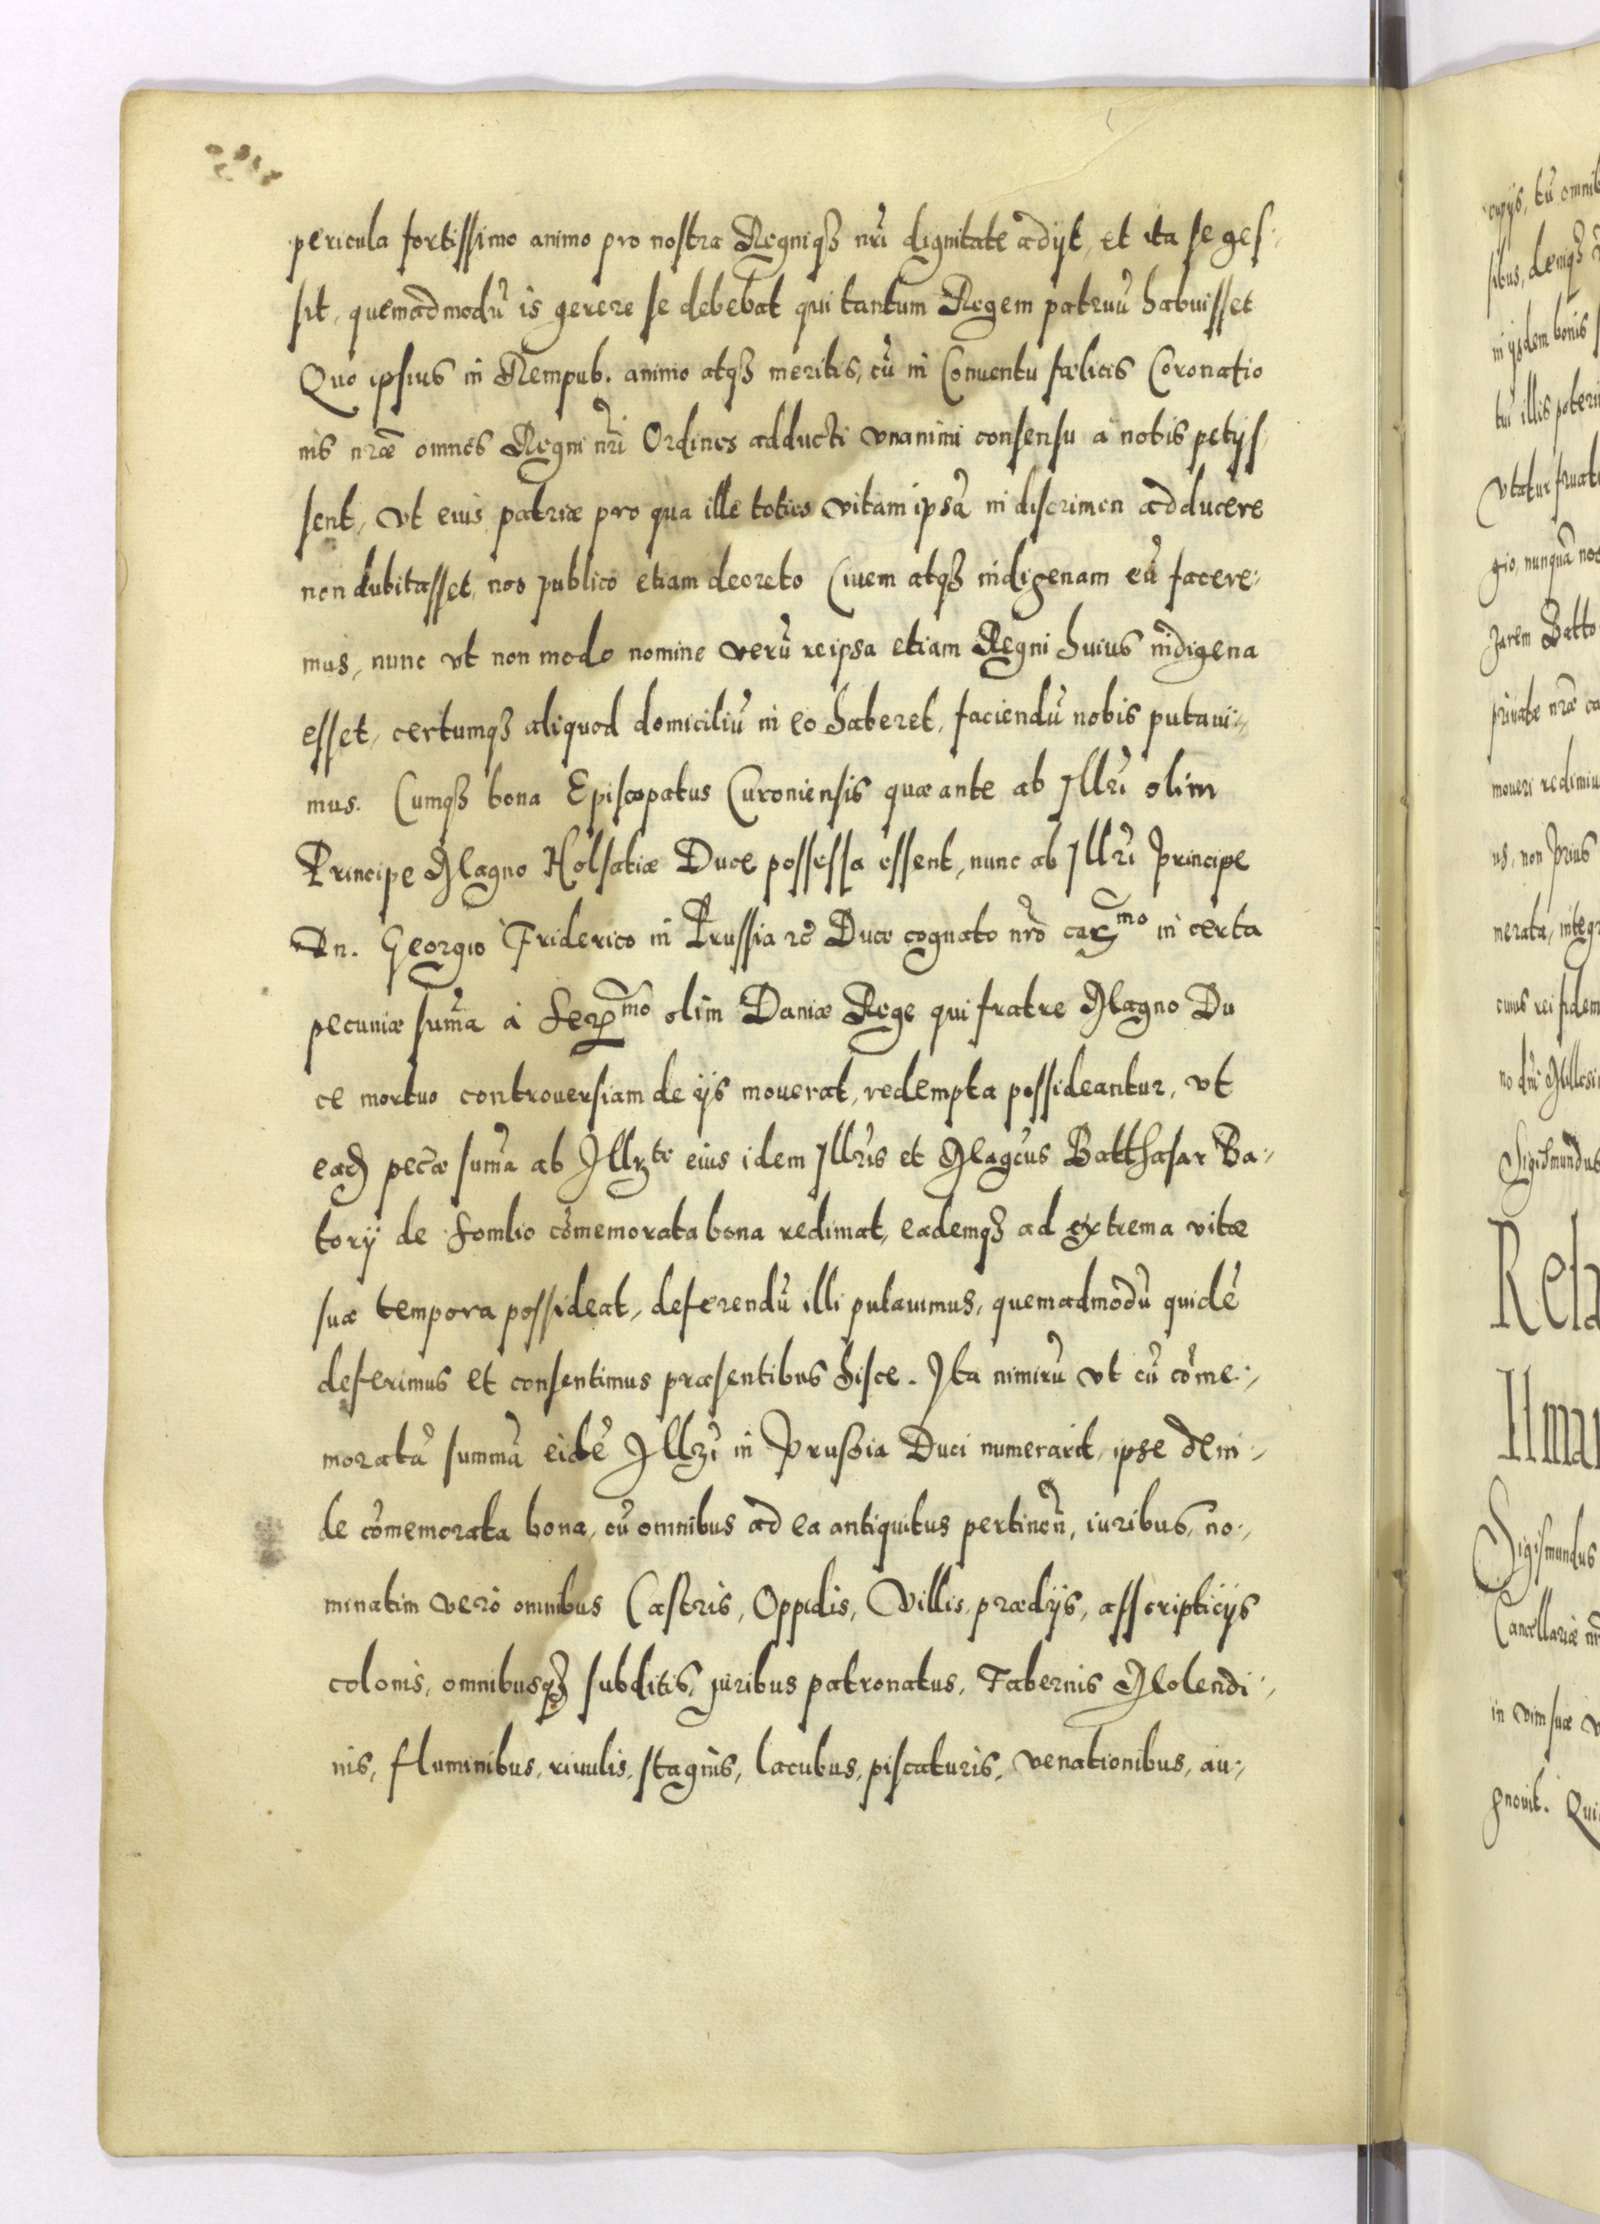 pericula fortissimo animo pro nostra Regniq3 nr̃i dignitate adijt, et ita se ges:
sit, quemadmodũ is gerere se debebat qui tantum Regem patruũ habuisset
Quo ipsius in Rempub. animo atq3 meritis, cũ in Conuentu fœlicis Coronatio
nis nr̃æ omnes Regni nr̃i Ordines adducti vnanimi consensu à nobis petijs
sent, vt eius patriæ pro qua ille toties vitam ipsã in discrimen adducere
non dubitasset, nos publico etiam decreto Ciuem atq3 indigenam eũ facere:
mus, nunc vt non modo nomine verũ reipsa etiam Regni huius indigena
esset, certumq3 aliquod domiciliũ in eo haberet, faciendũ nobis putaui:
mus. Cumq3 bona Episcopatus Curoniensis quæ ante ab Illr̃i olim
Principe Magno Holsatiæ Duce possessa essent, nunc ab Illr̃i Principe
Dn. Georgio Friderico in Prussia &c̃ Duce cognato nr̃o car̃mo in certa
pecuniæ sum̃a à Ser̃mo olim Daniæ Rege qui fratre Magno Du
ce mortuo controuersiam de ijs mouerat, redempta possideantur, vt
ead3 pec̃æ sum̃a ab Illr̃te eius idem Illr̃is et Mag̃cus Balthasar Ba:
tory de Somlio cõmemorata bona redimat, eademq3 ad extrema vitæ
suæ tempora possideat, deferendũ illi putauimus, quemadmodũ quidẽ
deferimus et consentimus præsentibus hisce. Ita nimirũ vt cũ cõme:
moratã summã eidẽ Illr̃i in Prussia Duci numerarit, ipse dein:
de cõmemorata bona, cũ omnibus ad ea antiquitus pertineñ, iuribus, no:
minatim verò omnibus Castris, Oppidis, Villis, prædijs, asscripticijs
colonis, omnibusq3 subditis, juribus patronatus, Tabernis Molendi:
nis, fluminibus, riuulis, stagnis, lacubus, piscaturis, venationibus, au:
tũ omnib
sibus, deniq3
in ijsdem bonis
illis poterit
Vtatur fruat
gio, nunquã
priuatæ nr̃æ ca
moueri redimi
us, non prius
nerata, integr
cuius rei fidem
Sigismundus
Rela
Sigismundus
Cancellariæ
in vim suæ
gnouit. Qui